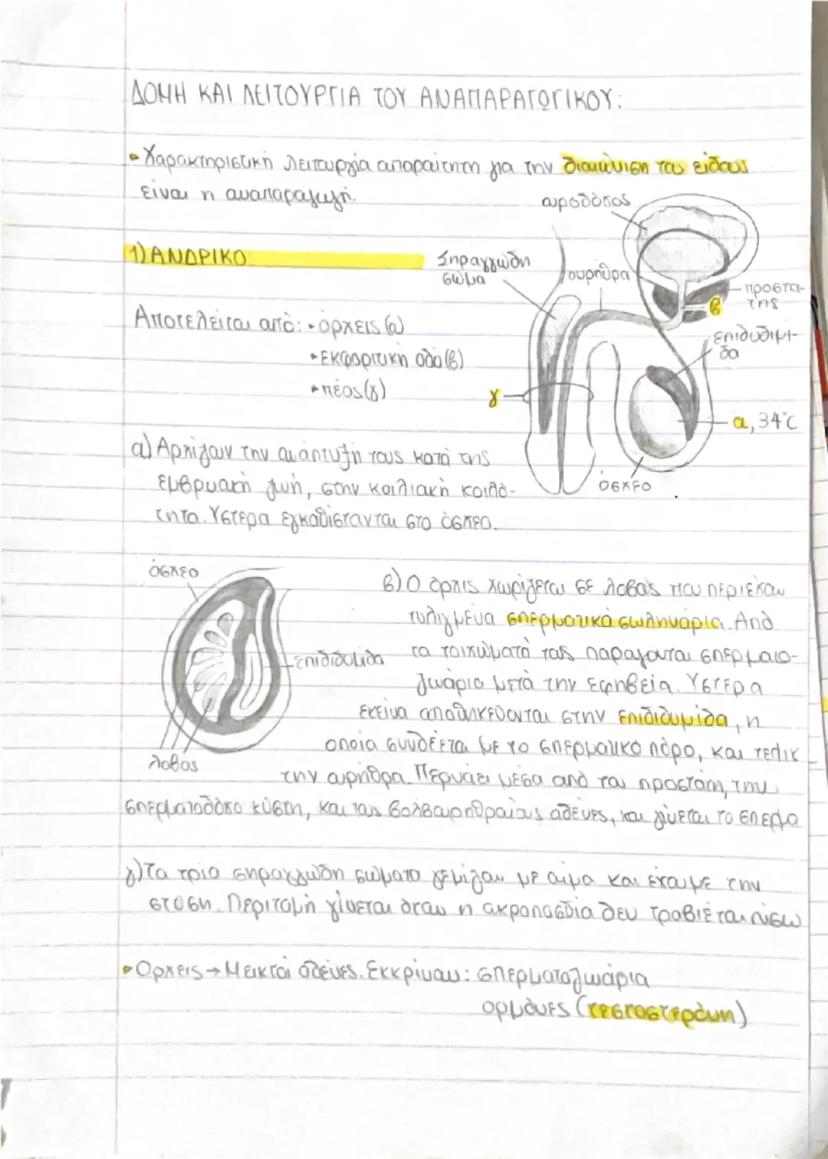 ΔΟΜΗ ΚΑΙ ΛΕΙΤΟΥΡΓΙΑ ΤΟΥ ΑΝΑΠΑΡΑΓΩΓΙΚΟΥ:
Χαρακτηριστική λειτουργία απαραίτητη για την διαιώνιση του είδους
είναι η αναπαραγωγή.
ουροδόχος
1) ΑΝΔΡΙΚΟ
Σηραγγώδη
σώμα
ουρήθρα
προστά-
της
β
Αποτελείται από: • όρχεις (α)
• εκφορητική οδό (β)
• πέος (γ)
επιδιδιμί-
δα
γ
α, 34°C
όσχεο
α) Αρχίζουν την ανάπτυξή τους κατά της
εμβρυακή ζωή, στην κοιλιακή κοιλό-
τητα. Ύστερα εγκαθίστανται στο όσχεο.
όσχεο
επιδιδυμίδα
λοβος
β) Ο όρχις χωρίζεται σε λοβούς που περιέχουν
τυλιγμένα σπερματικά σωληνάρια. Από
τα τοιχώματά τους παράγονται σπερματο-
ζωάρια μετά την εφηβεία. Ύστερα
εκείνα αποθηκεύονται στην επιδιδυμίδα, η
οποία συνδέεται με το σπερματικό πόρο, και τελικ
την ουρήθρα. Περνάει μέσα από τον προστάτη, την
σπερματοδόχο κύστη, και τους βολβουρηθραίους αδένες, και γίνεται το σπέρμα
γ) Τα τρία σηραγγώδη σώματα γεμίζουν με αίμα και έχουμε την
στύση. Περιτομή γίνεται όταν η ακροποσθία δεν τραβιέται πίσω
Όρχεις → Μεικτοί αδένες. Εκκρίνουν: σπερματοζωάρια
ορμόνες (τεστοστερόνη)